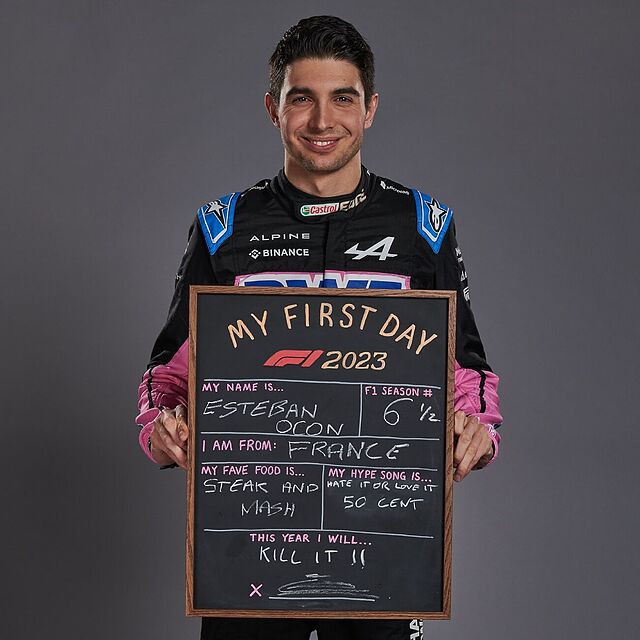 Castrol
Microsoft
ALPINE
BINANCE
A
BWT
MY FIRST DAY
F1 2023
MY NAME IS...
F1 SEASON #
ESTEBAN
OCON
6 ½
I AM FROM: FRANCE
MY FAVE FOOD IS...
STEAK AND
MASH
MY HYPE SONG IS...
HATE IT OR LOVE IT
50 CENT
THIS YEAR I WILL...
KILL IT !!
X